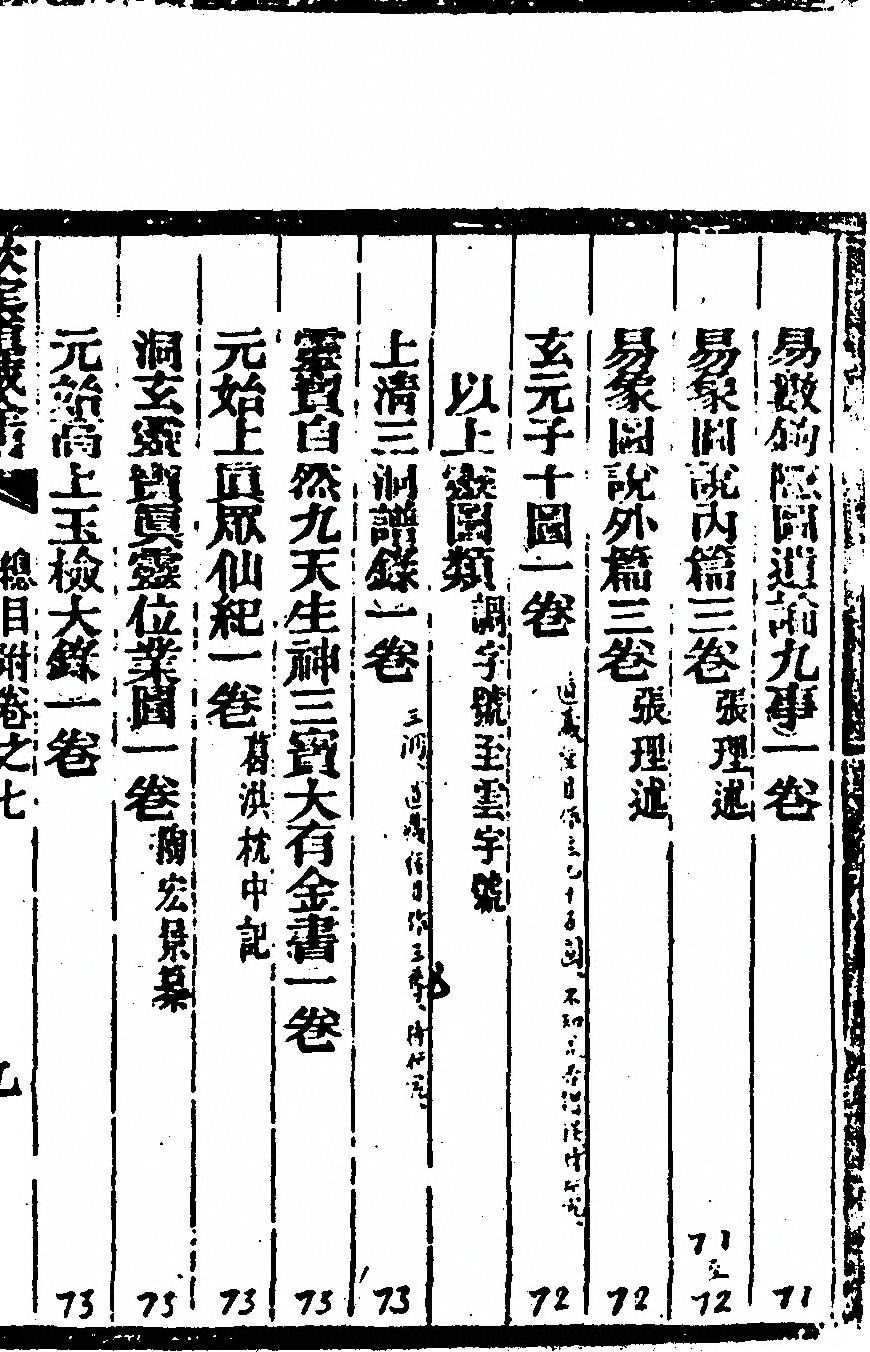 易數鉤隱圖遺論九事一卷
71
易象圖說內篇三卷 張理述
71
至
72
易象圖說外篇三卷 張理述
72
玄元子十圖一卷
72
以上靈圖類 調字號至雲字號
上清三洞譜錄一卷
73
靈寶自然九天生神三寶大有金書一卷
73
元始上眞眾仙紀一卷 葛洪枕中記
73
洞玄靈寶眞靈位業圖一卷 陶宏景纂
73
元始高上玉檢大錄一卷
73
總目附卷之七